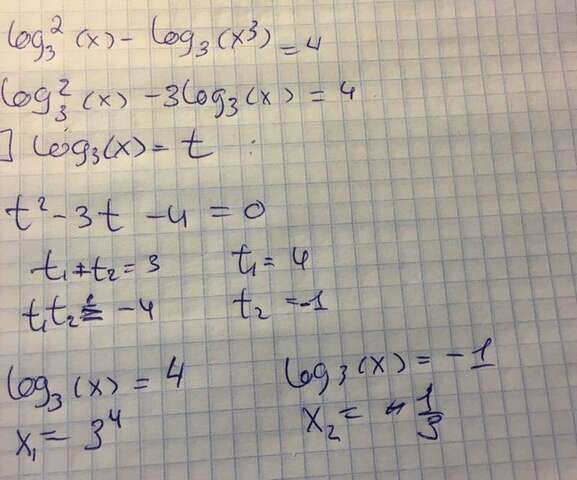 log₃²(x) - log₃(x³) = 4
log₃²(x) - 3log₃(x) = 4
] log₃(x) = t :
t² - 3t - 4 = 0
t₁ + t₂ = 3 t₁ = 4
t₁t₂ = -4 t₂ = -1
log₃(x) = 4 log₃(x) = -1
x₁ = 3⁴ x₂ = 1/3